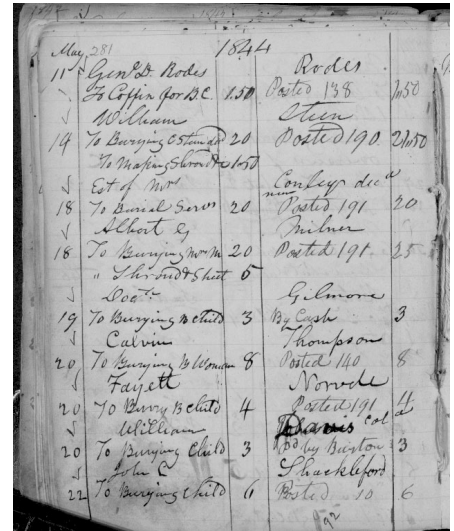 May 281 1844
11 Genl D. Rodes Rodes
To Coffin for B.C. 1.50 Posted 138 1.50
William Steen
14 To Burying 20 Posted 190 21.50
To Making Shroud 1.50
Est of Mrs Conleys decd
18 To Burial Servs 20 Posted 191 20
Albert G Milner
18 To Burying Mrs M 20 Posted 191 25
" Shroud & Sheet 5
Doctr Gilmore
19 To Burying B Child 3 By Cash 3
Calvin Thompson
20 To Burying B Woman 8 Posted 140 8
Fayett Norvele
20 To Burry B Child 4 Posted 191 4
William Davis cold
20 To Burying Child 3 Pd by Burton 3
John C Shackleford
22 To Burying Child 6 Posted 10 6
92